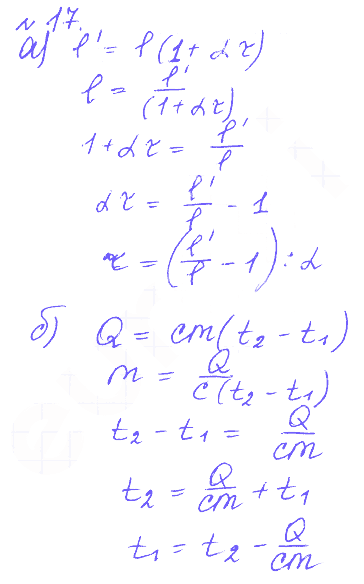 № 17.
а) ℓ' = ℓ(1 + ατ)
ℓ = ℓ'/(1 + ατ)
1 + ατ = ℓ'/ℓ
ατ = ℓ'/ℓ - 1
τ = (ℓ'/ℓ - 1) : α
б) Q = cm(t₂ - t₁)
m = Q/c(t₂ - t₁)
t₂ - t₁ = Q/cm
t₂ = Q/cm + t₁
t₁ = t₂ - Q/cm